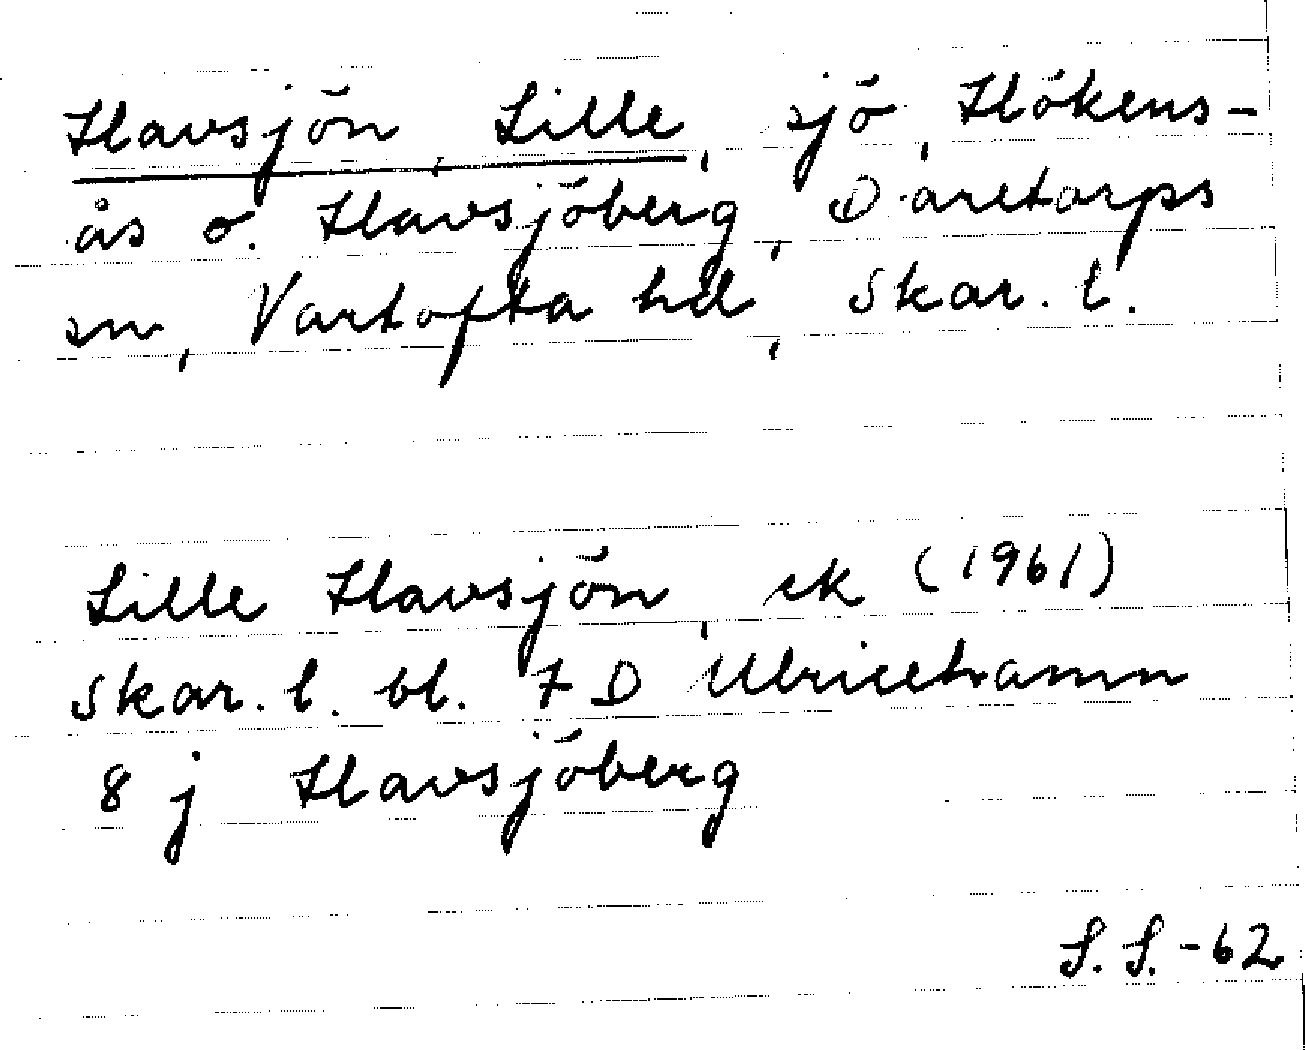 Havsjön, Lille, sjö, Hökens-
ås o. Havsjöberg, Daretorps
sn, Vartofta hd, Skar. l.
Lille Havsjön, ek (1961)
Skar. l. bl. 7 D Ulricehamn
8 j Havsjöberg
S. S. -62